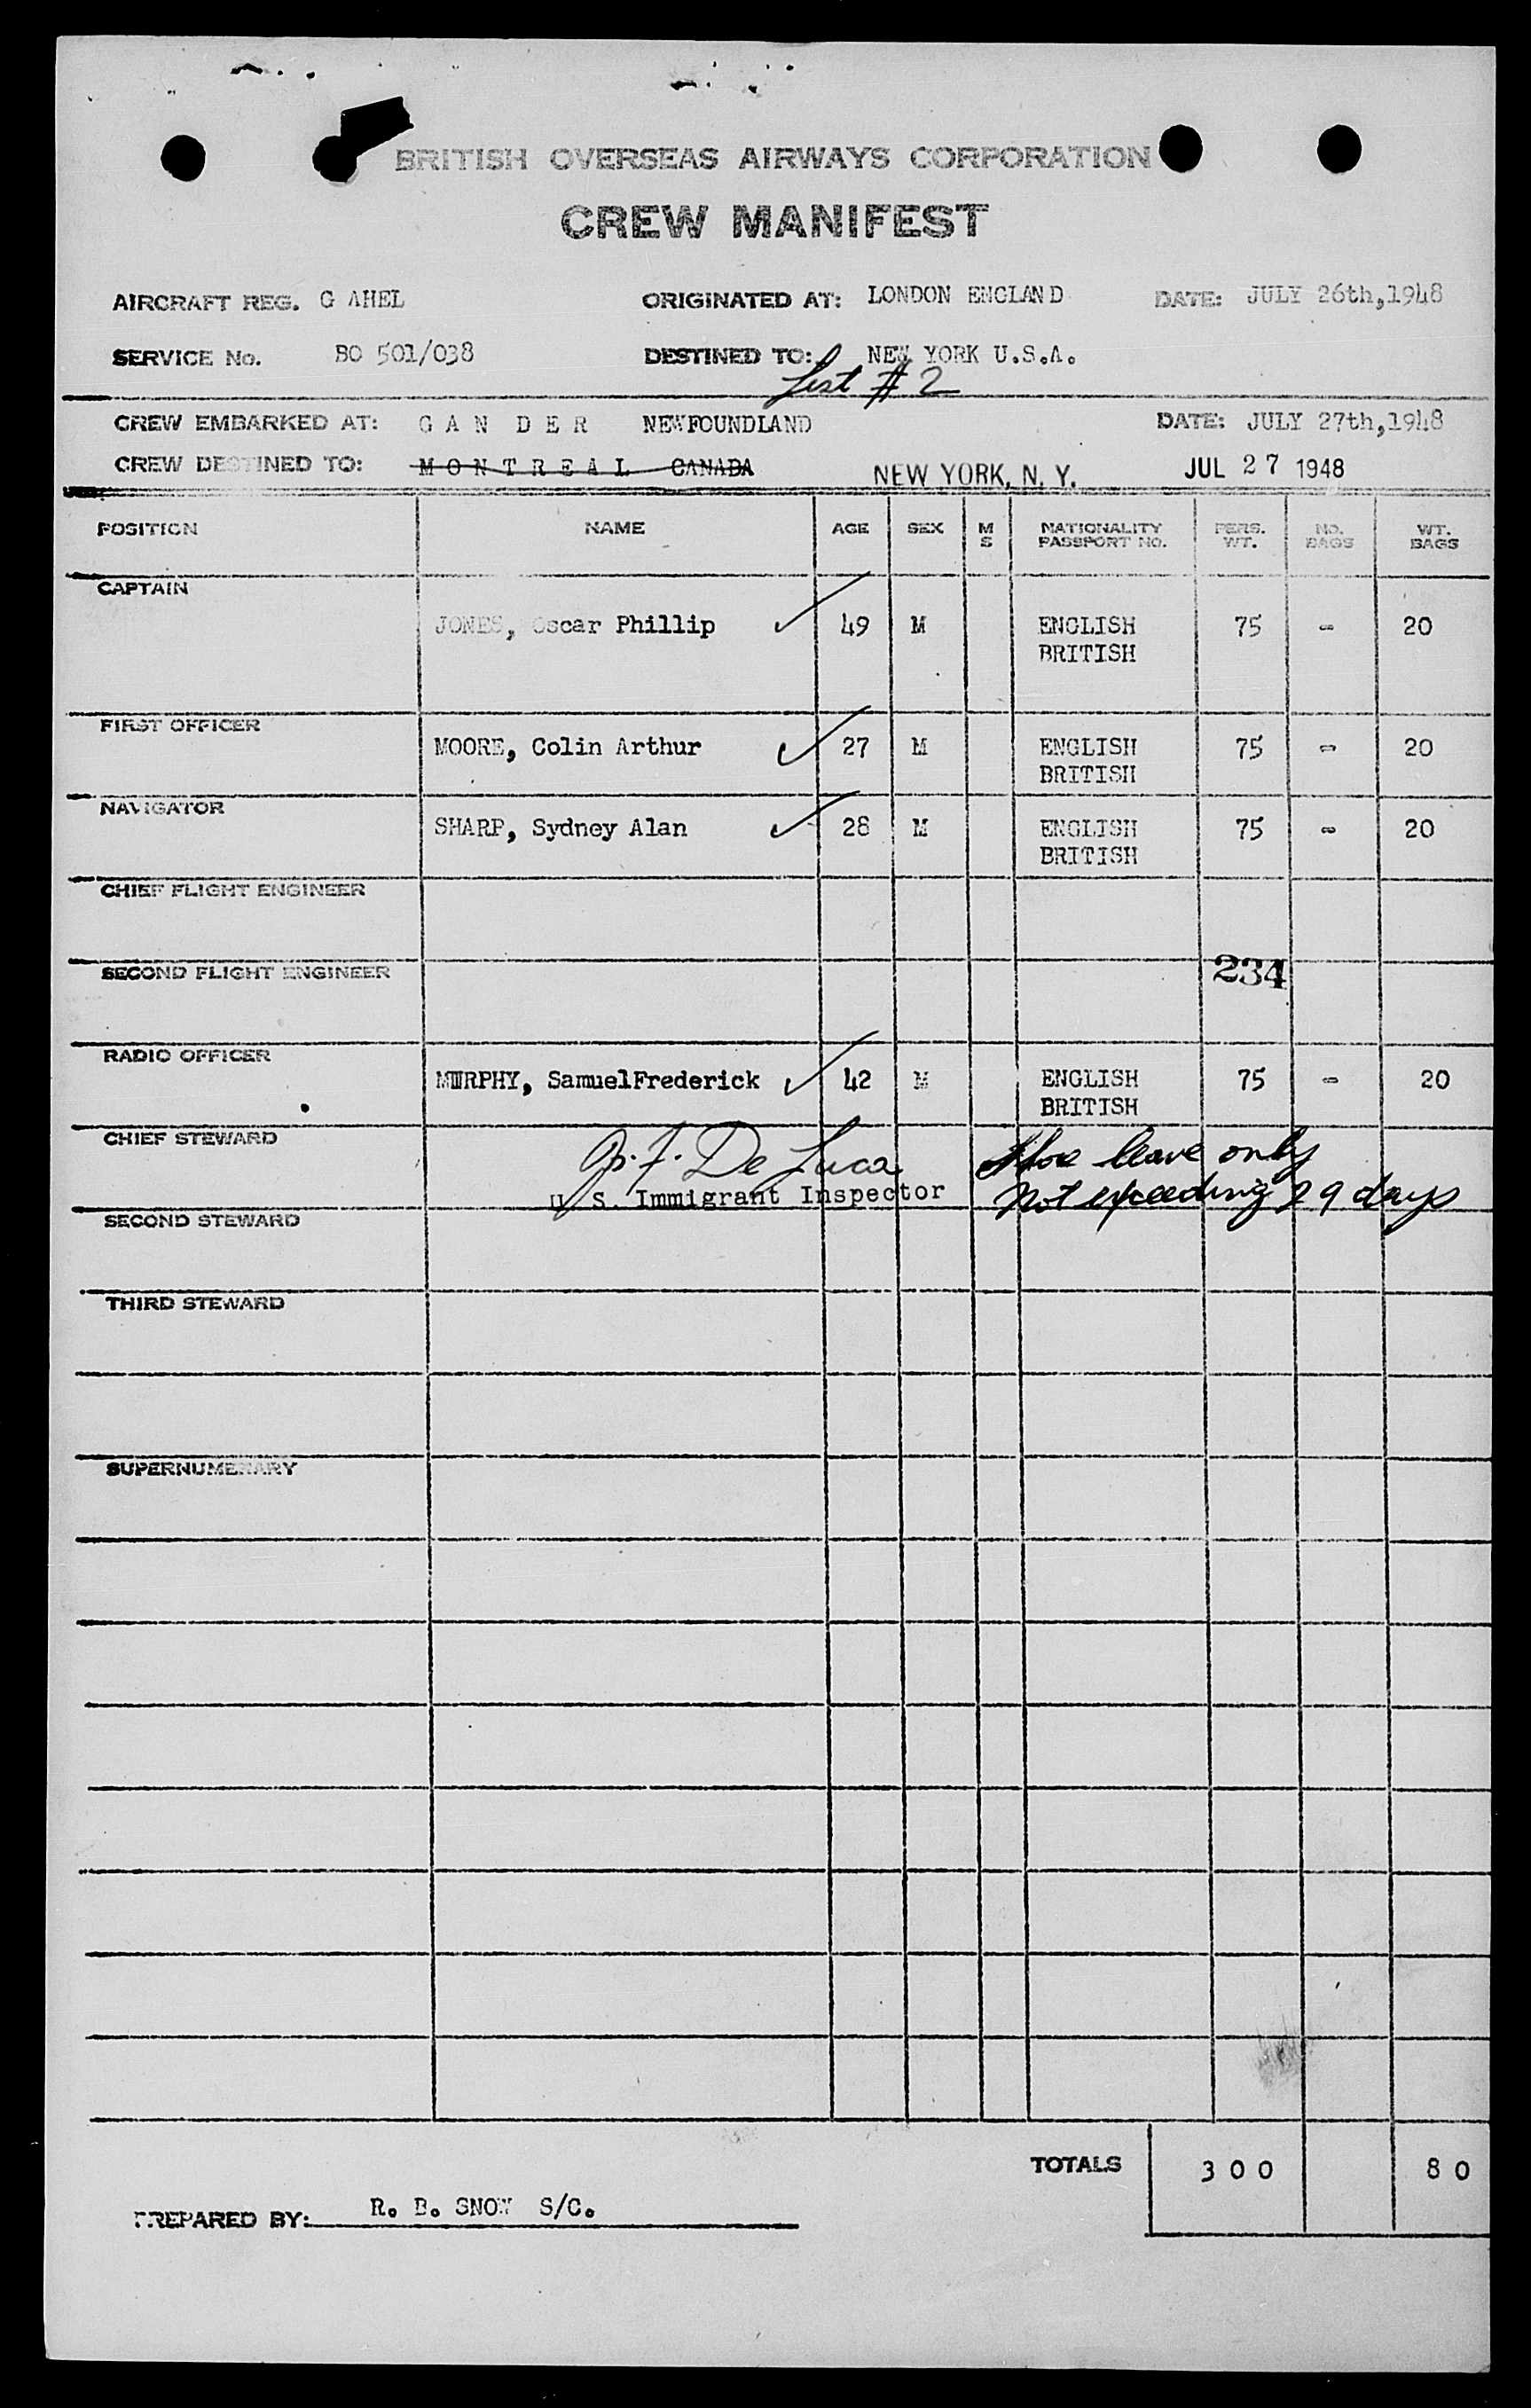 BRITISH OVERSEAS AIRWAYS CORPORATION
CREW MANIFEST
AIRCRAFT REG. G AHEL ORIGINATED AT: LONDON ENGLAND DATE: JULY 26th,1948
SERVICE No. BO 501/038 DESTINED TO: NEW YORK U.S.A.
List # 2
CREW EMBARKED AT: G A N D E R NEWFOUNDLAND DATE: JULY 27th,1948
CREW DESTINED TO: M O N T R E A L CANADA NEW YORK, N. Y. JUL 27 1948
POSITION NAME AGE SEX M S NATIONALITY PASSPORT NO. PERS. WT. NO. BAGS WT. BAGS
CAPTAIN
JONES, Oscar Phillip 49 M ENGLISH 75 - 20
BRITISH
FIRST OFFICER
MOORE, Colin Arthur 27 M ENGLISH 75 - 20
BRITISH
NAVIGATOR
SHARP, Sydney Alan 28 M ENGLISH 75 - 20
BRITISH
CHIEF FLIGHT ENGINEER
SECOND FLIGHT ENGINEER 234
RADIO OFFICER
MURPHY, SamuelFrederick 42 M ENGLISH 75 - 20
BRITISH
CHIEF STEWARD
De Luca leave only
U. S. Immigrant Inspector Not exceeding 29 days
SECOND STEWARD
THIRD STEWARD
SUPERNUMERARY
TOTALS 300 80
PREPARED BY: R. B. SNOW S/C.